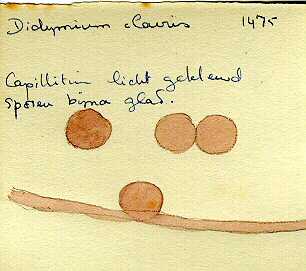 Didymium clavus 1475
Capillitium licht gekleurd
sporen bijna glad.